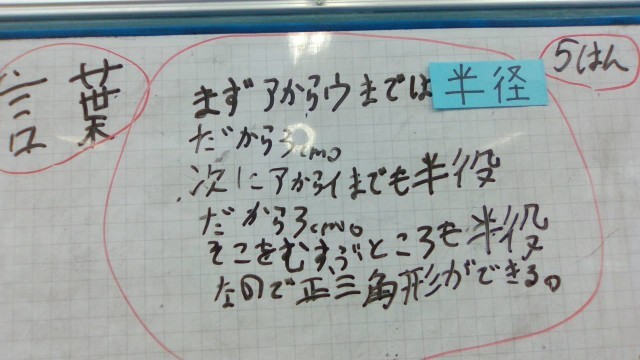 言葉
5はん
まずアからウまでは半径
だから3cm。
次にアからイまでも半役
だから3cm。
そこをむすぶところも半役
なので正三角形ができる。